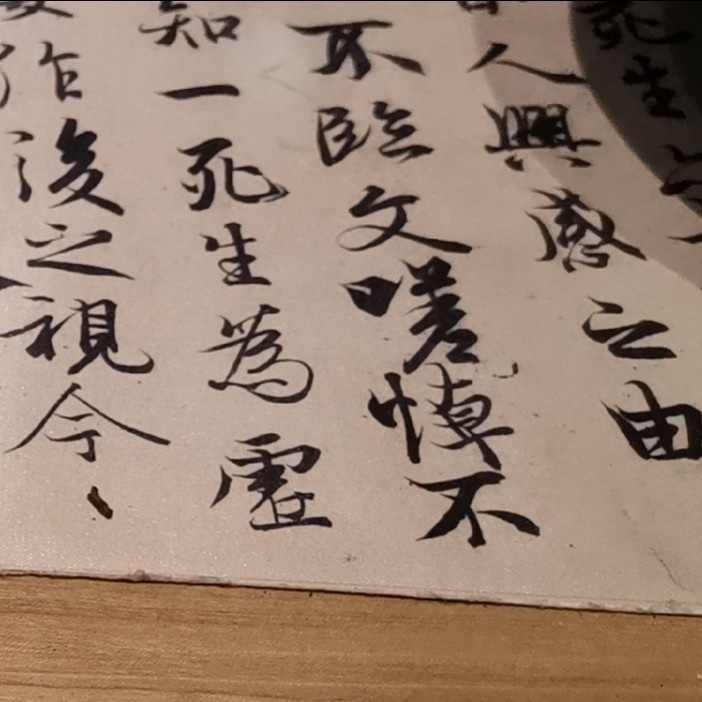 死生
人興感之由
不臨文嗟悼不
知一死生為虛
作後之視今